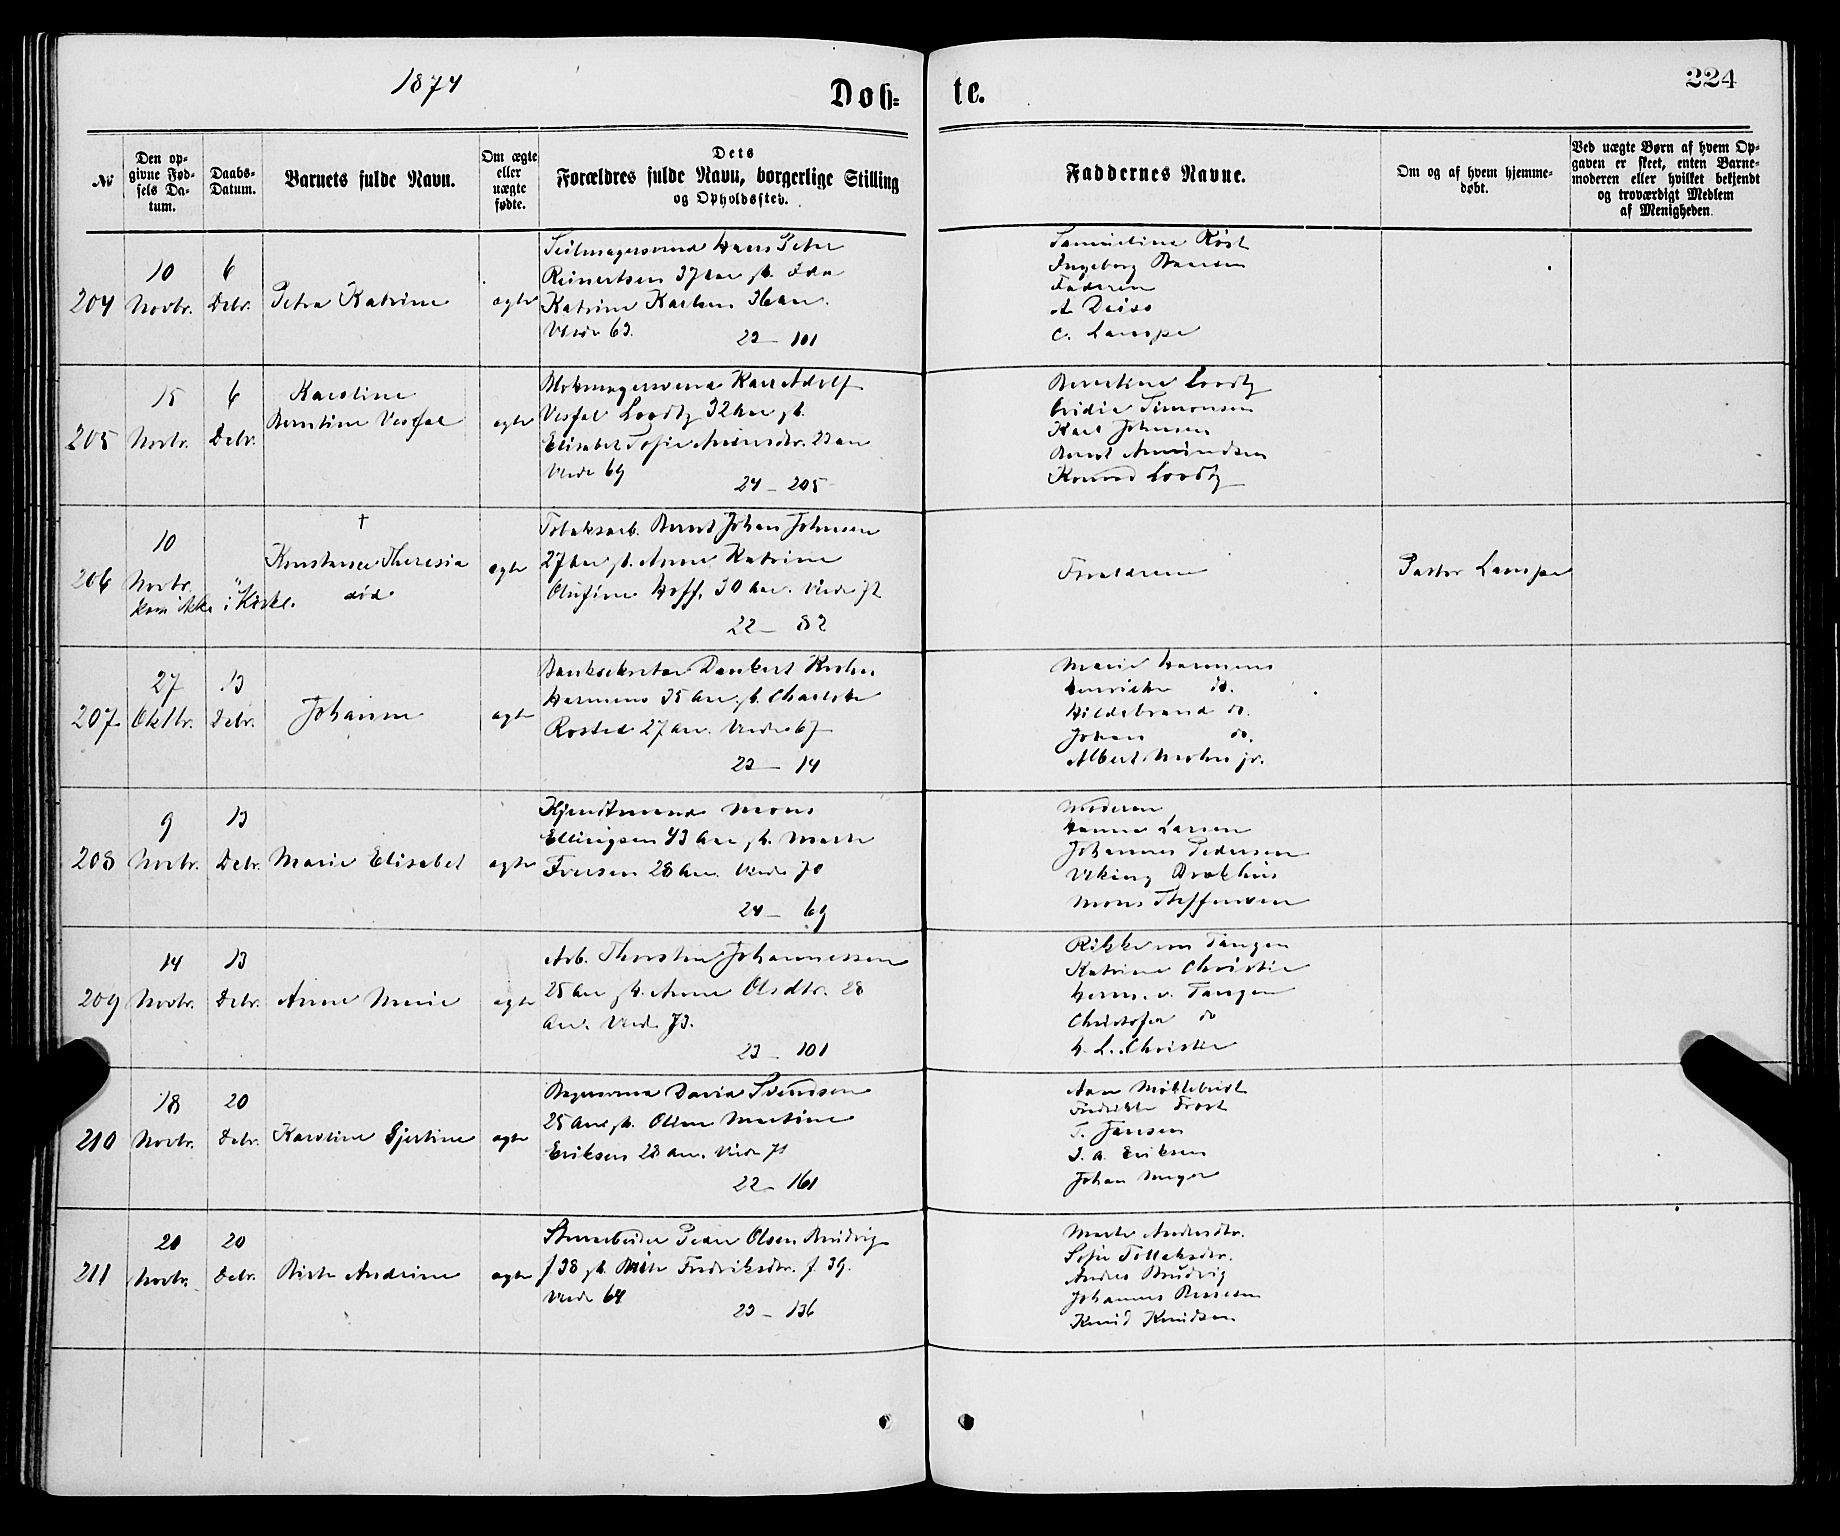 1874
Døb=
te.
224
№
Den op=
givne Fød=
sels Da=
tum.
Daabs=
Datum.
Barnets fulde Navn.
Om ægte
eller
uægte
fødte.
Dets
Forældres fulde Navn, borgerlige Stilling
og Opholdssted.
Faddernes Navne.
Om og af hvem hjemme=
døbt.
Ved uægte Børn af hvem Op=
gaven er skeet, enten Barne=
moderen eller hvilket bekjendt
og troværdigt Medlem
af Menigheden.
204
10
Novbr.
6
Debr.
Petra Katrine
ægte
Seilmagersvend Hans Peter
Reinertsen 37 Aar g. Ida
Katrine Karlsen 36 aar.
Viede 63.
23 — 101
Samueline Røst
Ingeborg Bærsen
Faderen
A
C. Lampe
205
15
Novbr.
6
Debr.
Karoline
Berntine Vesfal
ægte
Blokmagersvend Karl Adolf
Vesfal Loodtz 32 Aar g.
Elisabet Sofie Amundsdtr. 23 aar
Viede 69
24 — 205
Berntine Loodtz
Ovidia Simonsen
Karl Johnsen
Bernt Amundsen
Konrad Loodtz
206
10
Novbr.
kom ikke i Kirke.
†
Konstance Theresia
død
ægte
Tobaksarb. Bernt Johan Johnsen
27 Aar g. Anne Katrine
Olufine Hoff, 30 Aar. Viede 72
22 — 82
Forældrene
Pastor Lampe
207
27
Oktbr.
13
Debr.
Johanne
ægte
Banksekretær Dankert Krohn
Harmens 35 Aar g. Charlotte
Rosted 27 Aar. Viede 67
23 — 14
Marie Harmens
Henrikke do.
Hildebrand do.
Johan do.
Albert Mohn jr.
208
9
Novbr.
13
Debr.
Marie Elisabet
ægte
Kjendtmand Mons
Ellingsen 43 Aar g. Marte
Iversen 28 Aar. Viede 70
24 — 69
Moderen
Hanne Larsen
Johannes Pedersen
Viking Brækhus
Mons Steffensen
209
14
Novbr.
13
Debr.
Anne Marie
ægte
Arb. Thorsten Johannessen
25 Aar g. Anne Olsdtr. 28
Aar. Viede 73.
23 — 101
Rikke von Tangen
Katrine Christie
Herm. v. Tangen
Christofer do
H. L. Christie
210
18
Novbr.
20
Debr.
Karoline Gjertine
ægte
Bagersvend David Svendsen
25 Aar g. Oline Martine
Eriksen 28 Aar. Viede 71
22 — 161
Fredrikke Frost
T. Jansen
J. A. Eriksen
Johan Meyer
211
20
Novbr.
20
Debr.
Birte Andrine
ægte
Stenarbeider Peder Olsen Brudvig
f 38 g. Brite Fredriksdtr. f 39.
Viede 64
23 — 136
Marte Andersdtr.
Sofie Tollaksdtr.
Andreas Brudvig
Johannes Berntsen
Knud Knudsen